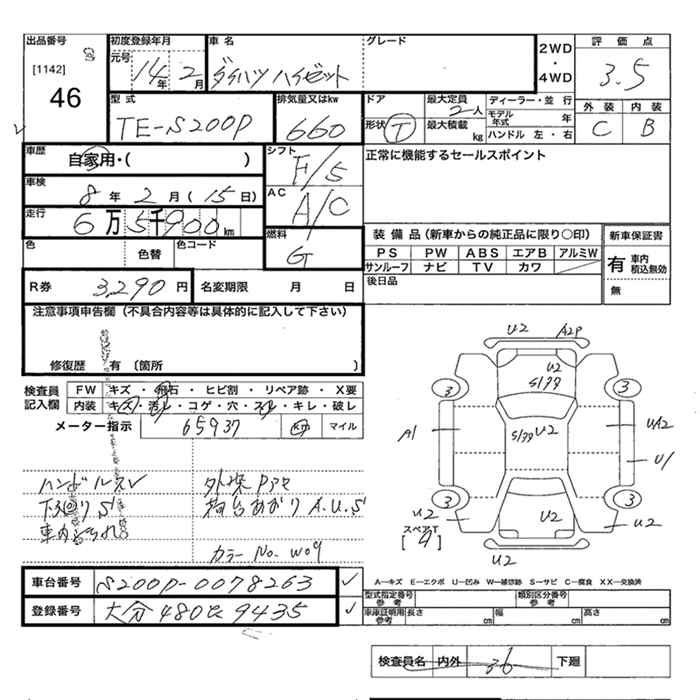 出品番号 初度登録年月 車名 グレード 評価点
[1142] 元号 14年 2月 ダイハツ ハイゼット 2WD・4WD 3.5
46
型式 排気量又はkw ドア 最大定員 2人 ディーラー・並行 外装 内装
TE-S200P 660 形状 T 最大積載 kg モデル年式 年 C B
ハンドル 左・右
車歴 自家用・( ) シフト F/5 正常に機能するセールスポイント
車検 8年 2月(15日) AC A/C
走行 6万5千900km
色 色替 色コード 燃料 G
装備品(新車からの純正品に限り○印) 新車保証書
PS PW ABS エアB アルミW 有 車内積込無効
サンルーフ ナビ TV カワ
後日品 無
R券 3,290円 名変期限 月 日
注意事項申告欄(不具合内容等は具体的に記入して下さい)
修復歴 有 〔箇所 〕
検査員記入欄 FW キズ・飛石・ヒビ割・リペア跡・X要
内装 キズ・汚レ・コゲ・穴・スレ・キレ・破レ
メーター指示 65937 km マイル
U2 A2P
U2
S199
3 3
A1 S199 U2 UA2
U1
3 3
U2 U2 U2
スペアT
U2
ハンドルスレ 外装Pアセ
下廻りS 荷台あおりA.U.S
車内よごれ
カラーNo. W09
車台番号 S200P-0078263
登録番号 大分480に9435
A-キズ E-エクボ U-凹み W-補修跡 S-サビ C-腐食 XX-交換済
型式指定番号 参考 類別区分番号 参考
車庫証明用 参考 長さ cm 幅 cm 高さ cm
検査員名 内外 36 下廻